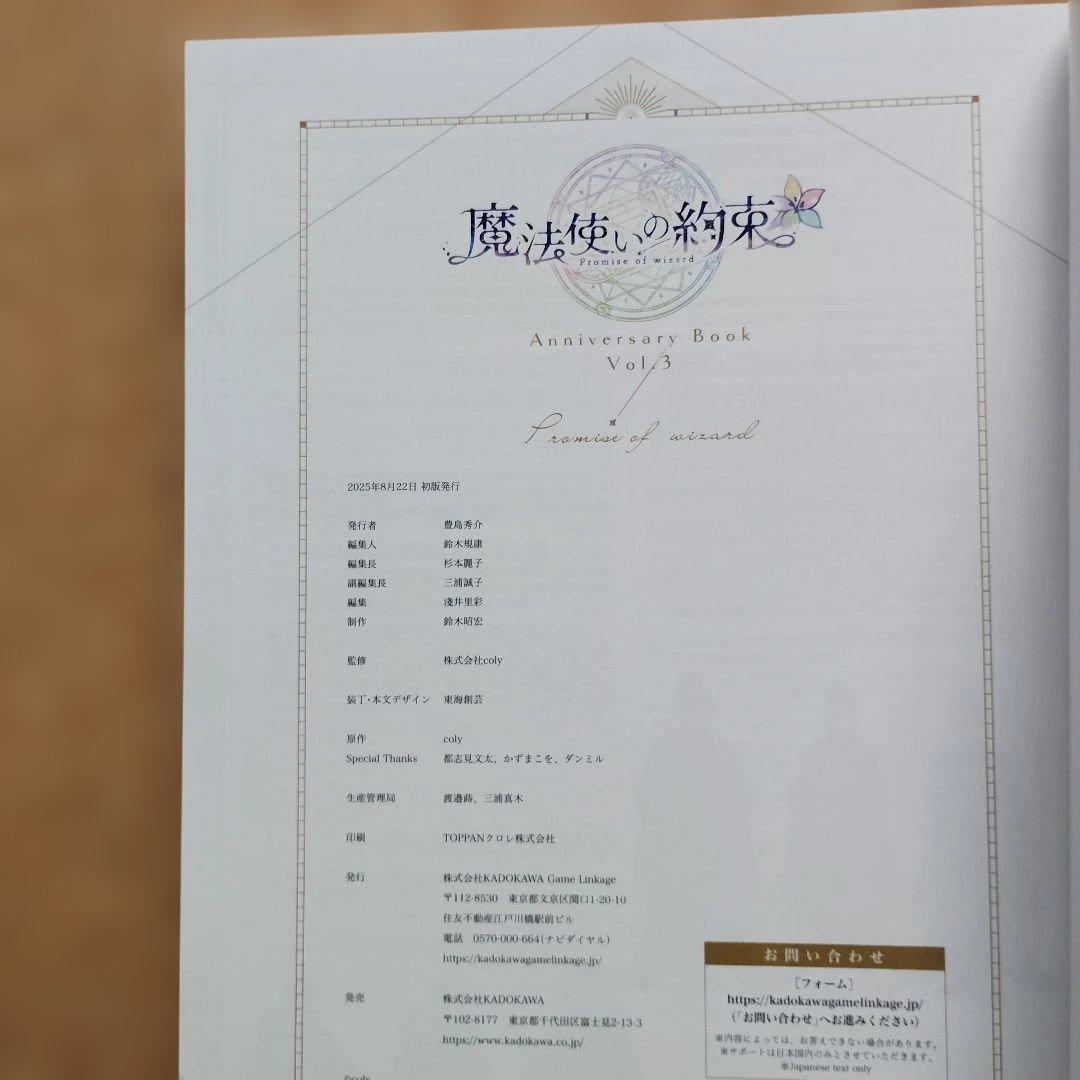 魔法使いの約束
Promise of wizard
Anniversary Book
Vol.3
Promise of wizard
2025年8月22日 初版発行
発行者 豊島秀介
編集人 鈴木規康
編集長 杉本麗子
副編集長 三浦誠子
編集 淺井里彩
制作 鈴木昭宏
監修 株式会社coly
装丁・本文デザイン 東海創芸
原作 coly
Special Thanks 都志見文太、かずまこを、ダンミル
生産管理局 渡邉蒔、三浦真木
印刷 TOPPANクロレ株式会社
発行 株式会社KADOKAWA Game Linkage
〒112-8530 東京都文京区関口1-20-10
住友不動産江戸川橋駅前ビル
電話 0570-000-664(ナビダイヤル)
https://kadokawagamelinkage.jp/
発売 株式会社KADOKAWA
〒102-8177 東京都千代田区富士見2-13-3
https://www.kadokawa.co.jp/
©coly
お問い合わせ
［フォーム］
https://kadokawagamelinkage.jp/
(「お問い合わせ」へお進みください)
※内容によっては、お答えできない場合があります。
※サポートは日本国内のみとさせていただきます。
※Japanese text only